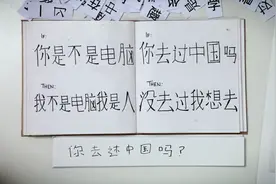 IF:
你是不是电脑
THEN:
我不是电脑我是人
IF:
你去过中国吗
THEN:
没去过我想去
你去过中国吗？